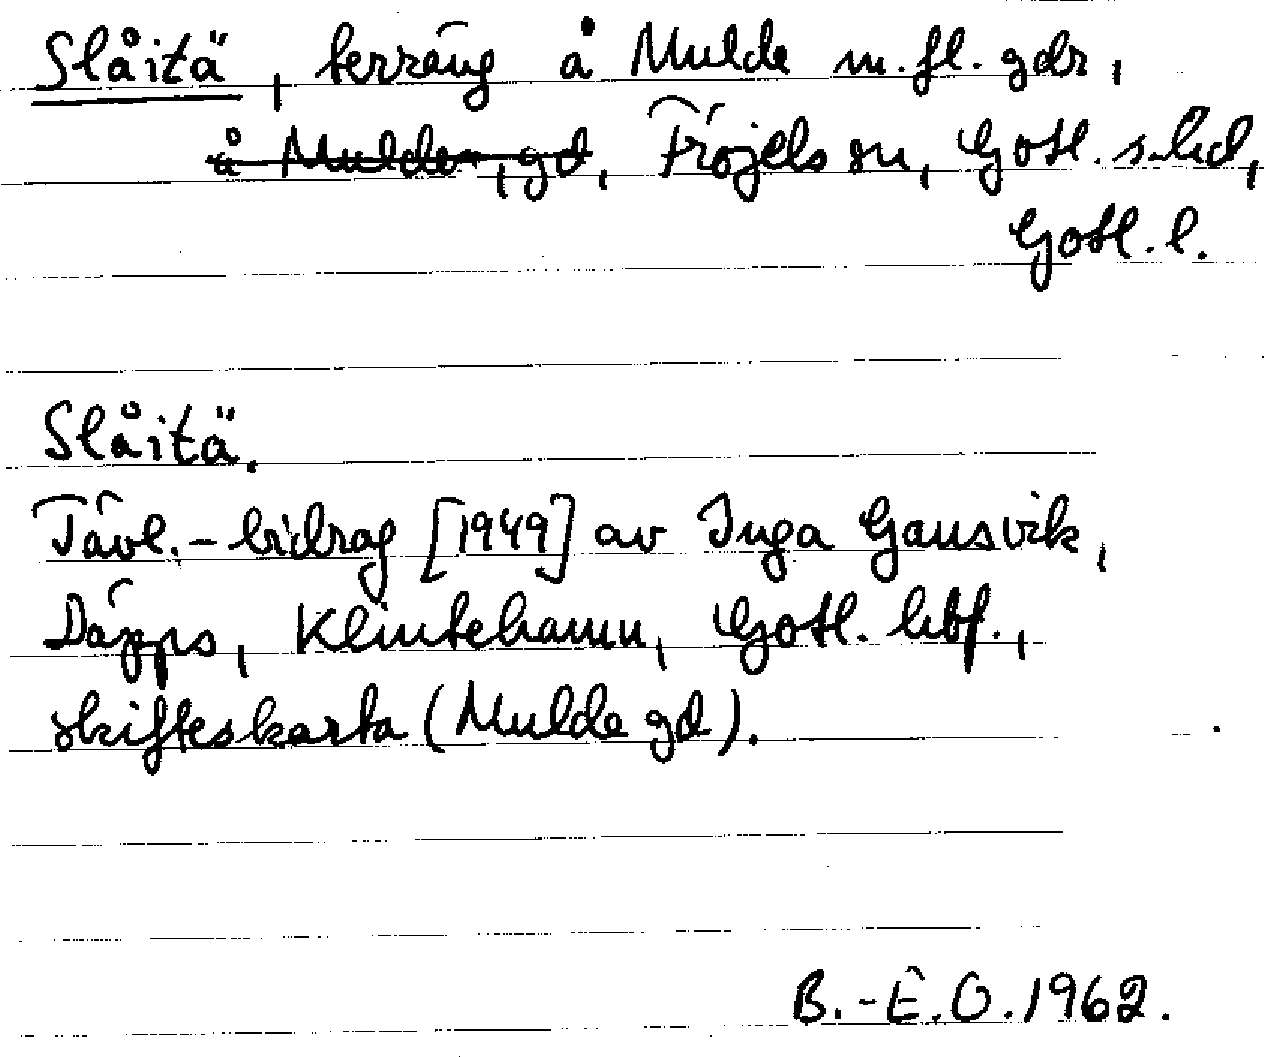 Slåitä, terräng å Mulde m.fl. gdr,
å Mulde, gd, Fröjels sn, Gotl. s. hd,
Gotl. l.
Slåitä.
Tävl.-bidrag [1949] av Inga Gansvik,
Däpps, Klintehamn, Gotl. hbf.,
skifteskarta (Mulde gd).
B.-E.O. 1962.